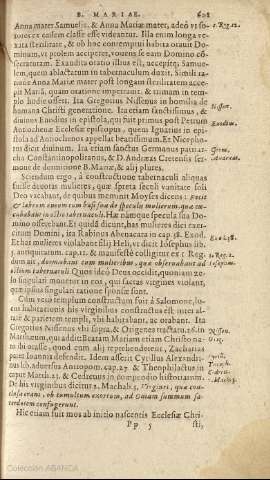 B. MARIAE. 601
Anna mater Samuelis, & Anna Mariæ mater, adeò vt so- 1. Reg. 1. 2.
rores ex eadem classe esse videantur. Illa enim longa ve-
xata sterilitate, & ob hoc contemptui habita orauit Do-
minum, vt prolem acciperet, vouens se eam Domino cō-
secraturam. Exaudita oratio illius est, accepitq; Samue-
lem, quem ablactatum in tabernaculum duxit. Simili ra-
tione Anna Mariæ mater post longam sterilitatem acce-
pit Mariā, quam oratione impetrarat, & trimam in tem-
plo Iudæo offert. Ita Gregorius Nissenus in homilia de Nissen.
humana Christi generatione. Ita etiam sanctissimus, &
diuinus Euodius in epistola, qui fuit primus post Petrum Euodius.
Antiochenæ Ecclesiæ episcopus, quem Ignatius in epi-
stola ad Antiochenos appellat beatissimum. Et Nicepho-
rus dicit diuinum. Ita etiam sanctus Germanus patriar- Germ.
cha Constantinopolitanus, & D. Andræas Cretensis ser- Andreas.
mone de dormitione B. Mariæ, & alij plures.
Sciendum ergo, à constructione tabernaculi aliquas
fuisse deuotas mulieres, quæ spreta seculi vanitate soli
Deo vacabant, de quibus meminit Moyses dicens: Fecit
& labrum æneum cum basi sua de speculis mulierum, quæ ex-
cubabant in ostio tabernaculi. Hæ námque specula sua Do-
mino offerebant. Et quidā dicunt, has mulieres dici exer-
citum Domini, ita Rabinus Abenazra in cap. 38. Exod.
Et has mulieres violabant filij Heli, vt dicit Iosephus lib. Exod. 38.
5. antiquitatum. cap. 11. & manifestè colligitur ex 1. Reg. 1. Reg. 2.
dum ait, dormiebant cum mulieribus, quæ obseruabant ad Iosephus.
ostium tabernaculi. Quos ideò Deus occidit, quoniam ze-
lo singulari mouetur in eos, qui factas virgines violant,
quæ ipsius singulari ratione sponsæ sunt.
Cum verò templum constructum fuit à Salomone, lo-
cus habitationis his virginibus constructus est inter al-
tare & parietem templi, vbi habitabant, ac orabant. Ita
Gregorius Nissenus vbi supra, & Origenes tractatu. 26. in Nissen.
Matthæum, qui addit: Beatam Mariam etiam Christo na- Orig.
to ibi orasse, quod cum alij reprehenderent, Zacharias
pater Ioannis defendit. Idem asserit Cyrillus Alexandri- Cyril.
nus lib. aduersus Antropom. cap. 27. & Theophilactus in Theoph.
caput Matth. 23. & Cedrenus in compendio historiarum. Cedren.
De his virginibus dicitur 2. Machab. 3. Virgines, quæ con- 2. Mach. 3.
clusæ erant, ob tumultum exortum, ad Oniam summum sa-
cerdotem confugerunt.
Hic etiam fuit mos ab initio nascentis Ecclesiæ Chri-
Pp 5 sti,
Colección ABANCA